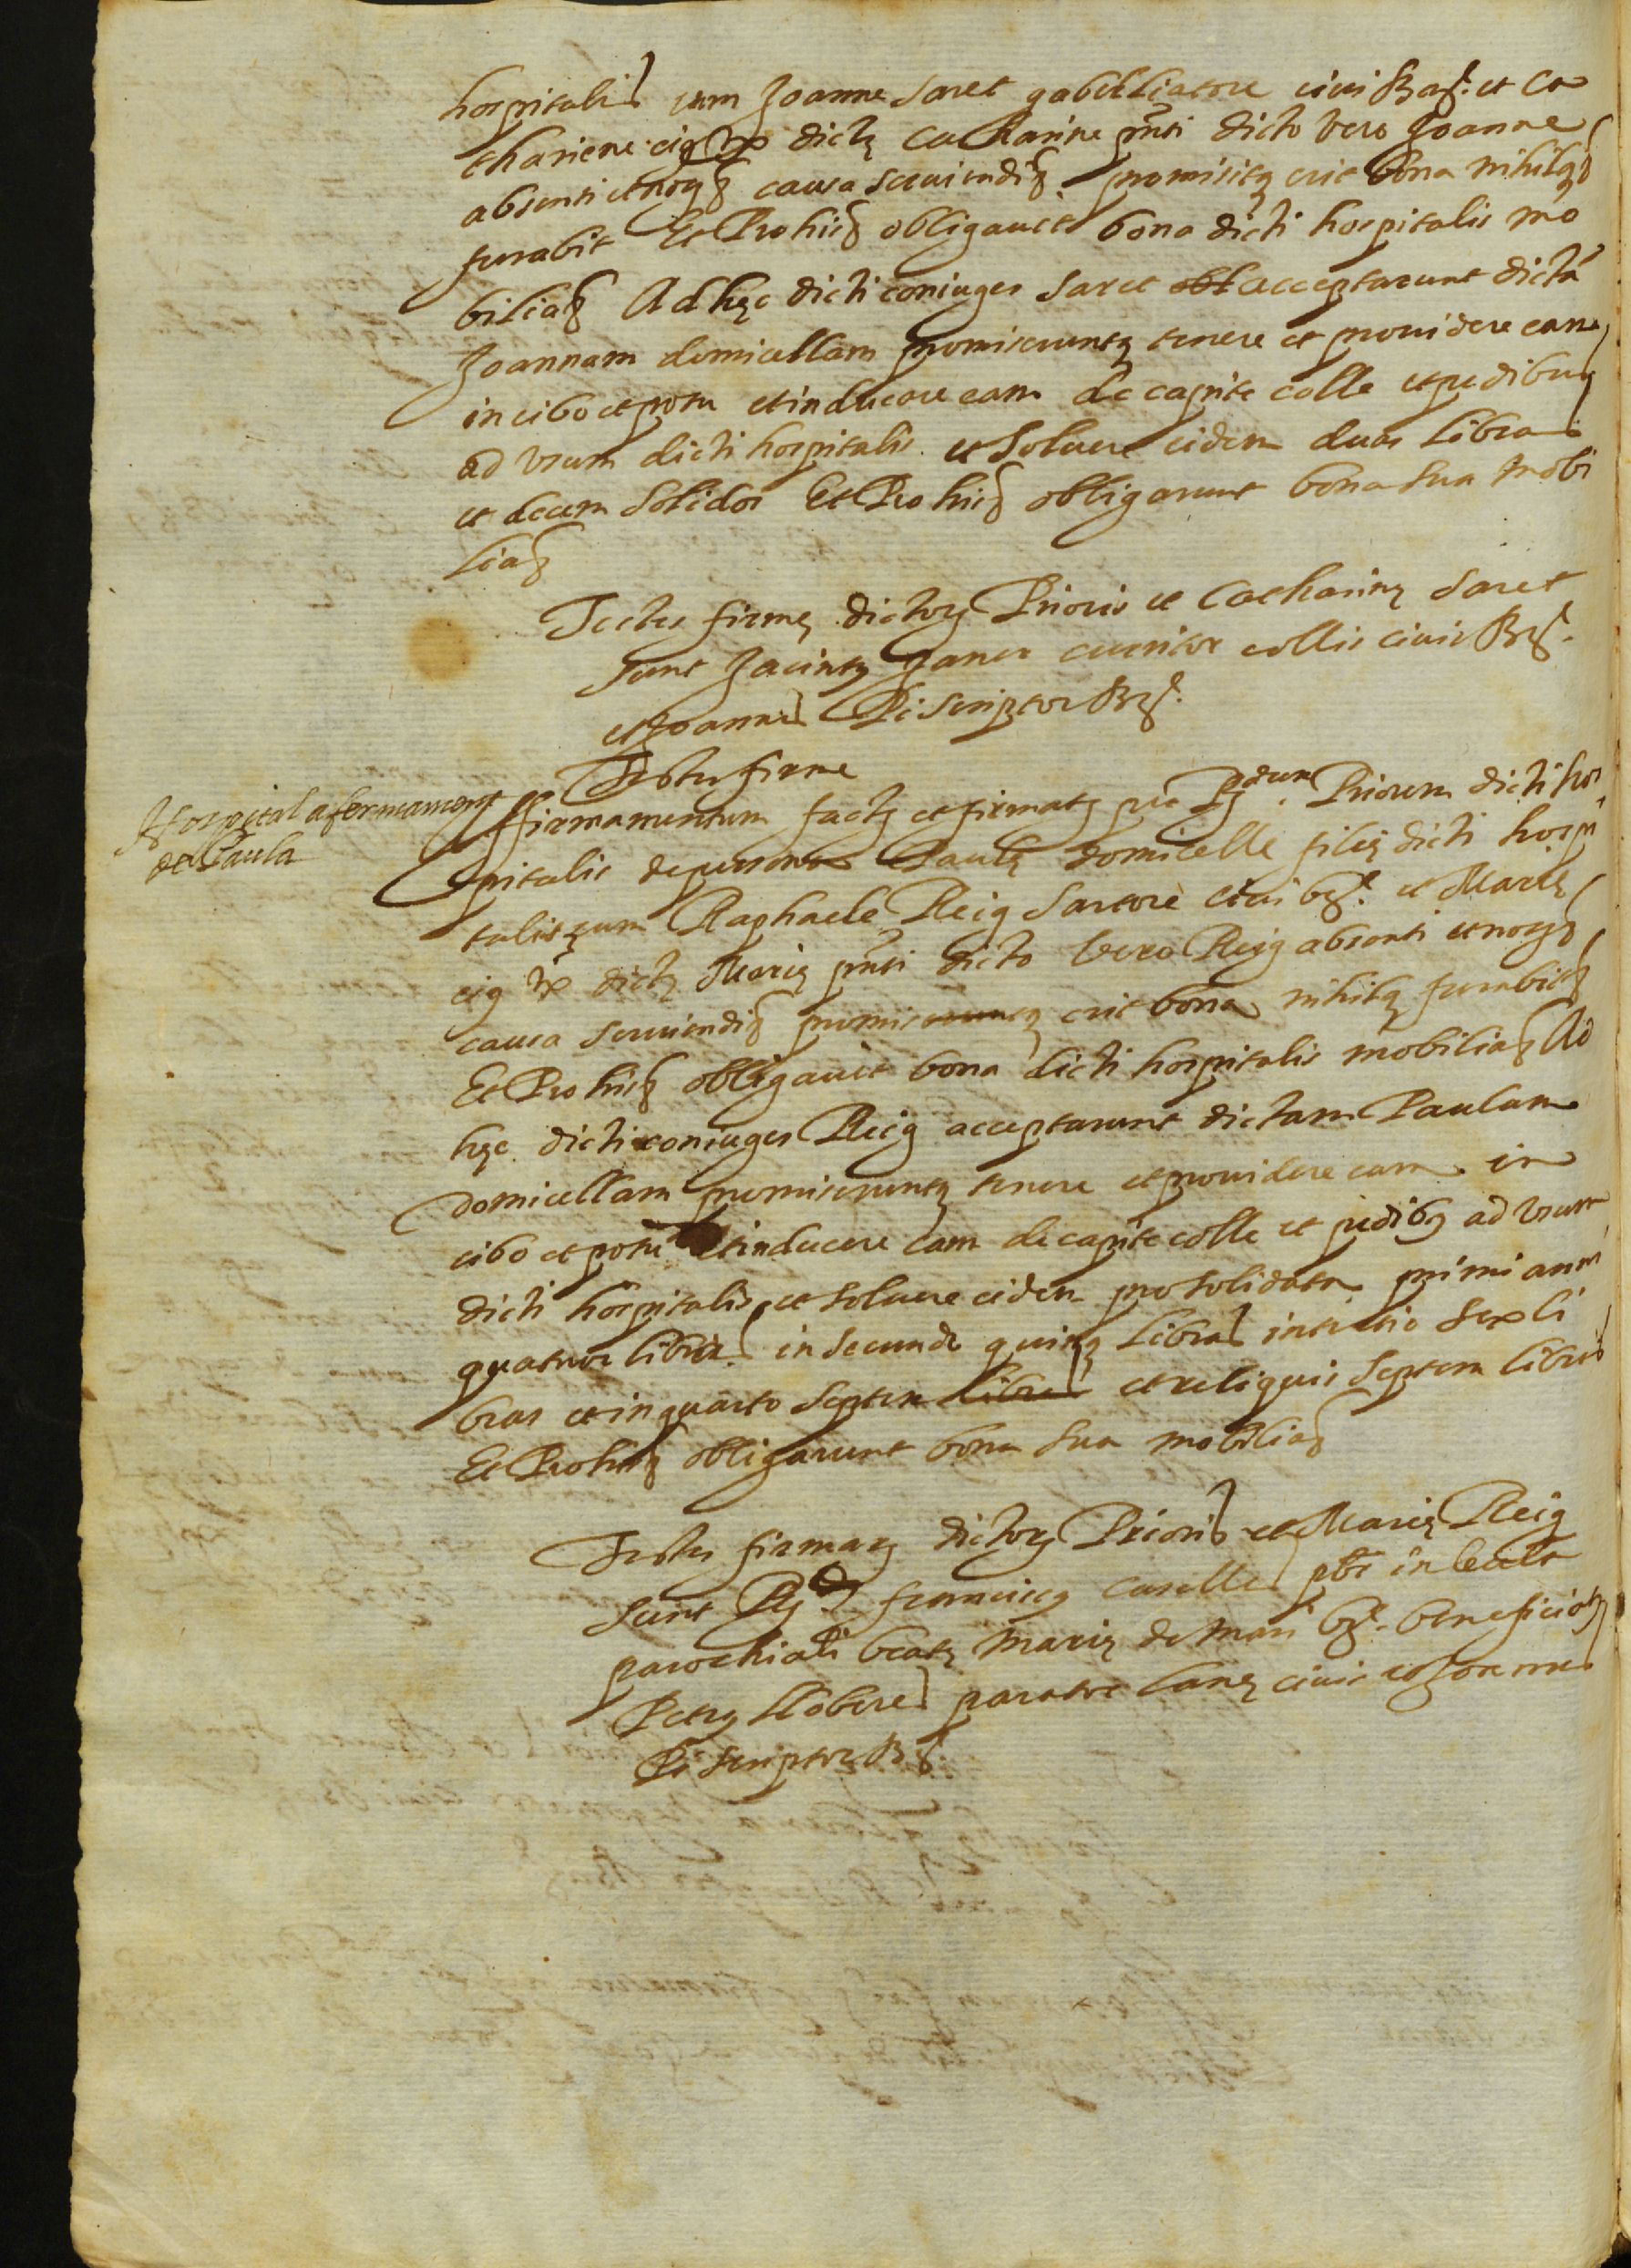 hospitalis cum Joanne Saret gabelliatore civi Bar. et Ca
thariene eiq ux dictę Catharine pnti dicto vero Joanne
absenti et noq causa serviendi promisitq erit bona nihilq
furabit Et Pro his obligavit bona dicti hospitalis mo
bilia Ad hęc dicti coniuges Saret obl acceptarunt dictā
Joannam domicellam promiseruntq tenere et providere eam
in cibo et potu et inducere eam de capite colle et pedibus
ad usum dicti hospitalis et solvere eidem duas libras
et decem solidos Et Pro his obligarunt bona sua mobi
lia
Testes firmę dictorq Prioris et Catharinę Saret
sunt Jacintq Janer cursitor collis civis Bar.
et Joannes Pi scriptor Bar.
Testes firme
Hospital afermament
de Paula
Affirmamentum factq et firmatq per Rdum Priorem dicti hos
pitalis de persona Paulę domicelle filię dicti hospi
talis cum Raphaele Reig sartore civi bar. et Marię
eiq ux dictę Marię pnti dicto vero Reig absenti et noq
causa serviendi promiseruntq erit bona nihilq furabit
Et Pro his obligavit bona dicti hospitalis mobilia Ad
hęc dicti coniuges Reig acceptarunt dictam Paulam
domicellam promiseruntq tenere et providere eam in
cibo et potu et inducere eam de capite colle et pedibq ad usum
dicti hospitalis et solvere eidem pro solidata primi anni
quatuor libras in secundo quinq libras in tertio sex li
bras et in quarto septem libras et reliquis septem libras
Et Pro his obligarunt bona sua mobilia
Testes firmarq dictorq Prioris et Marię Reig
sunt Rdq Franciscq Caselles pbr in eccla
parochiali beatę Marię de Mari bar. beneficiatq
Petrq Lloberes parator lanę civis et Joannes
Pi scriptor Bar.